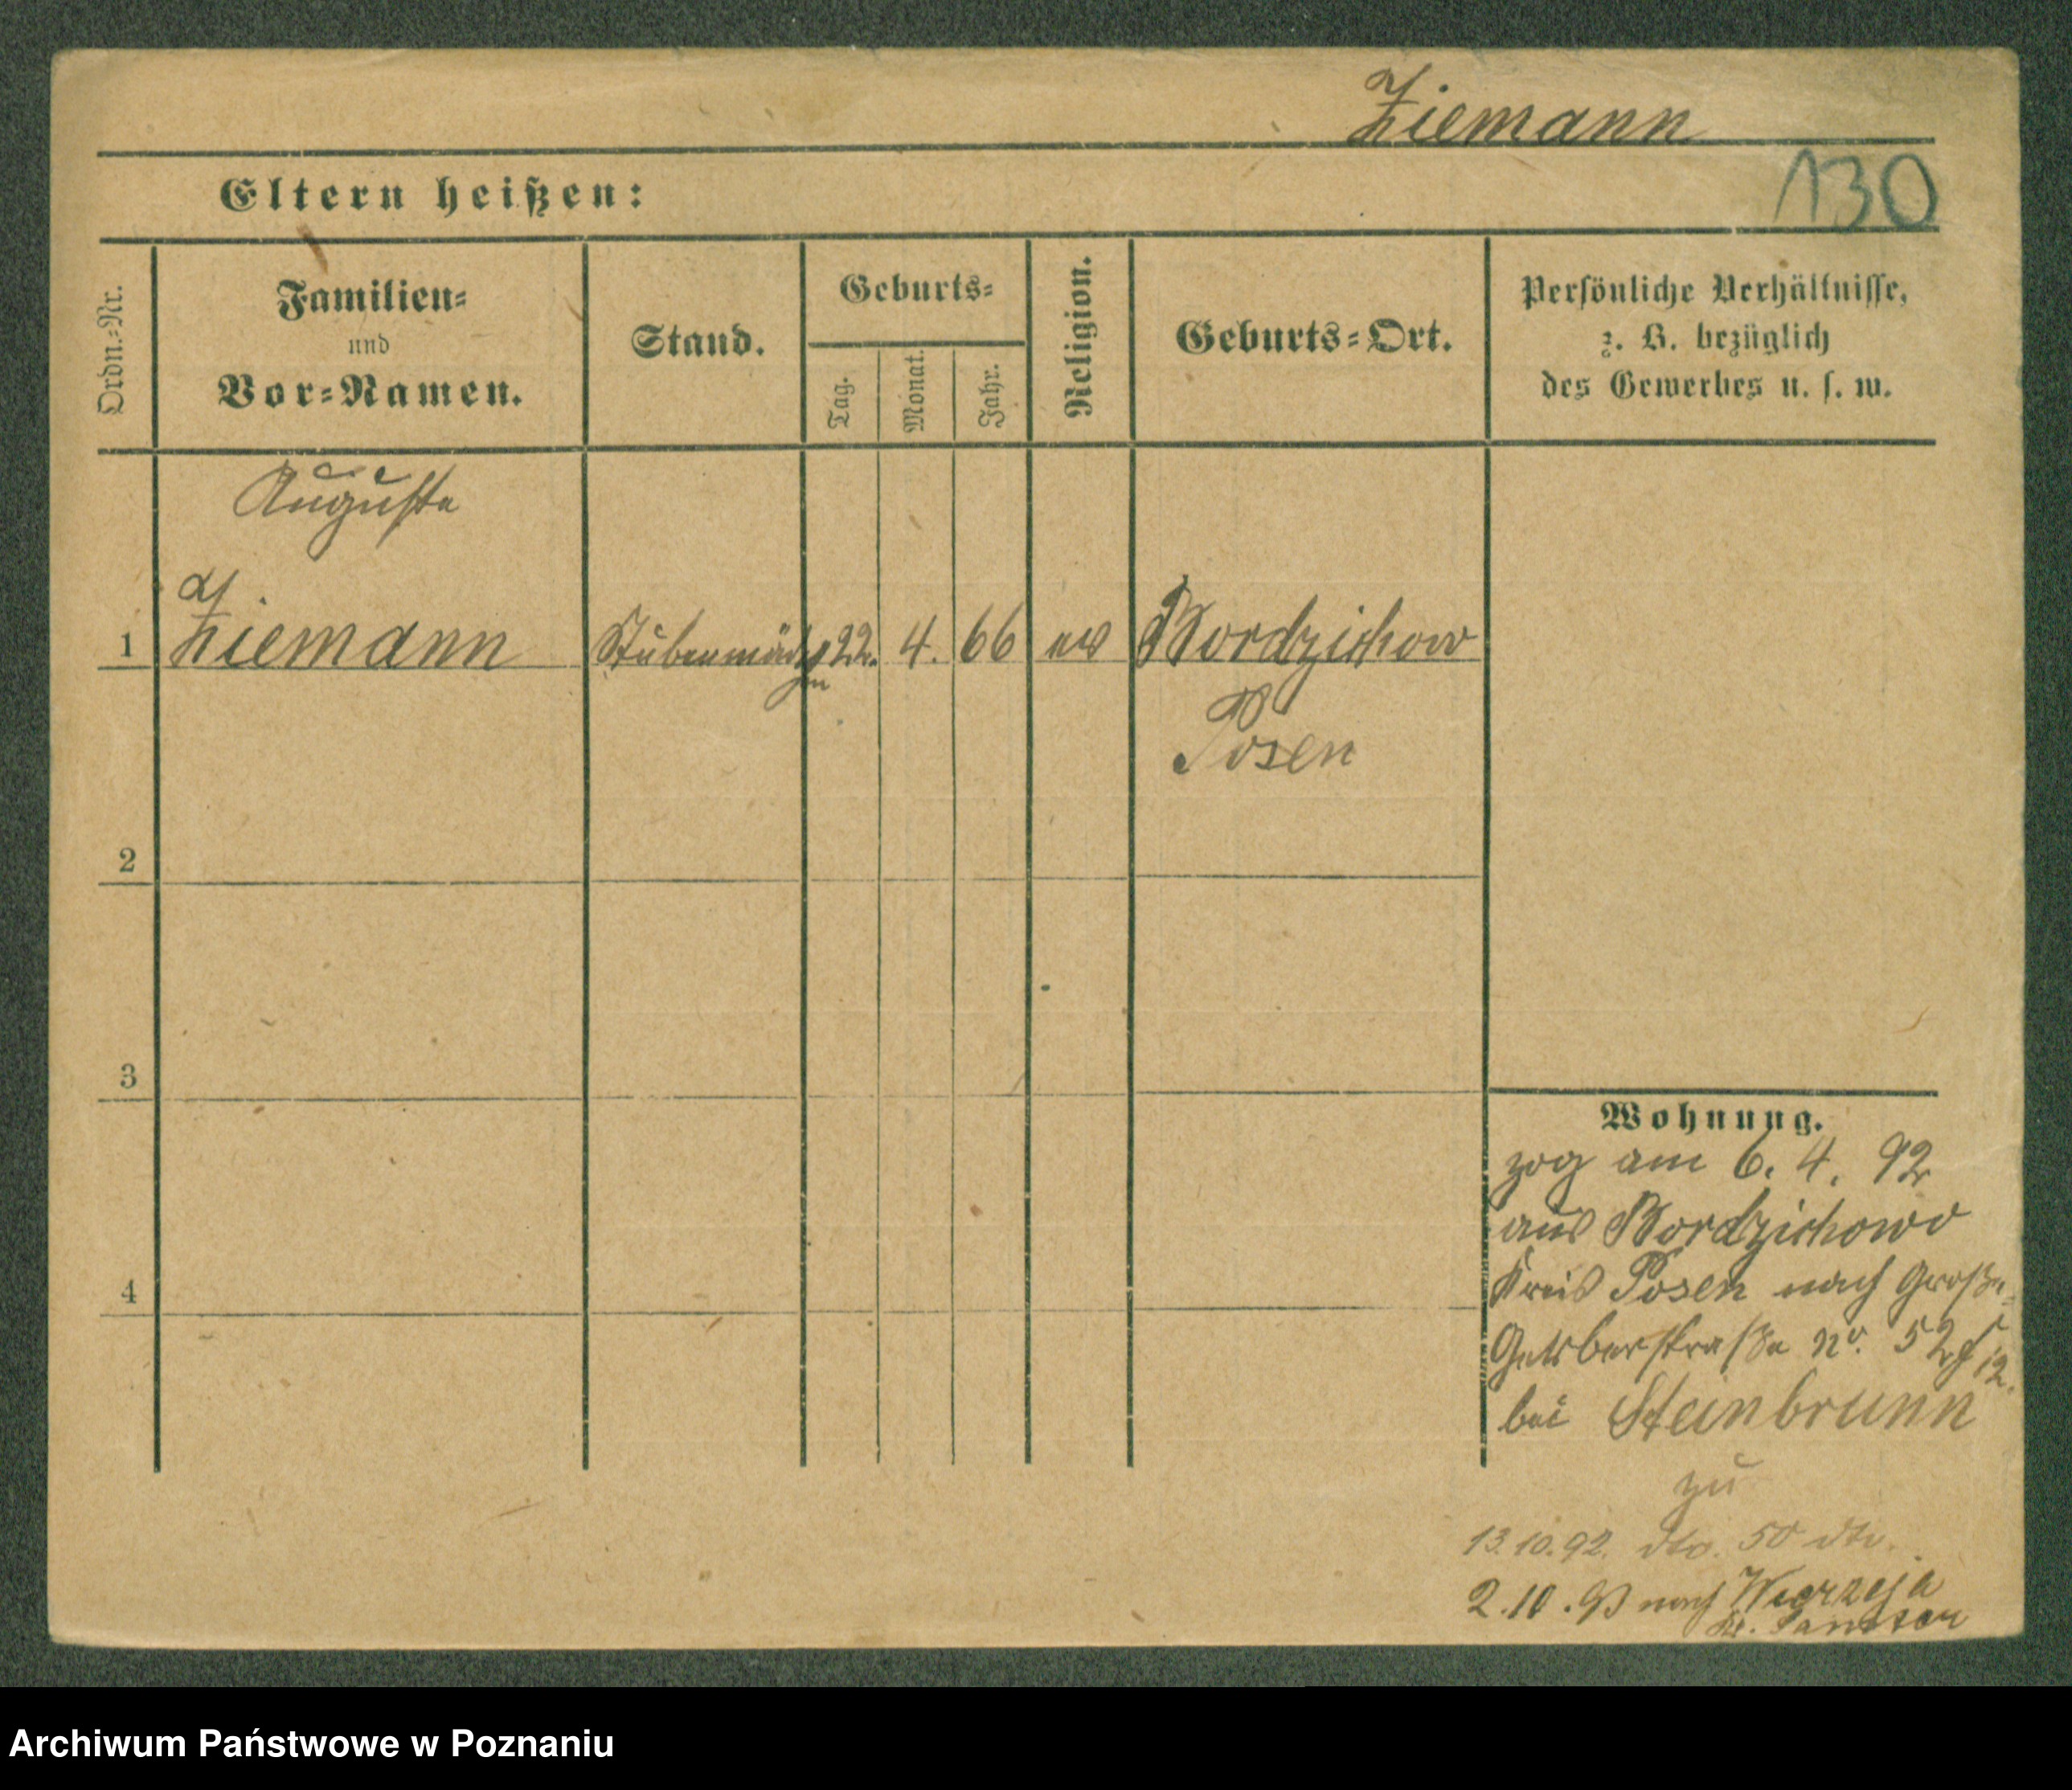 Ziemann
130
Eltern heißen:
Ordn.=Nr.
Familien=
und
Vor=Namen.
Stand.
Geburts=
Tag.
Monat.
Jahr.
Religion.
Geburts=Ort.
Persönliche Verhältnisse,
z. B. bezüglich
des Gewerbes u. s. w.
Auguste
1 Ziemann Stubenmädchen 22. 4. 66 ev Bordzichow
Posen
2
3
4
Wohnung.
zog am 6. 4. 92
aus Bordzichowo
Kreis Posen nach Große
Gerberstraße No. 52
bei Steinbrunn
zu
13.10.92. dto. 50 dto.
2.10.93 nach Wierzeja
Kr. Samter
Archiwum Państwowe w Poznaniu